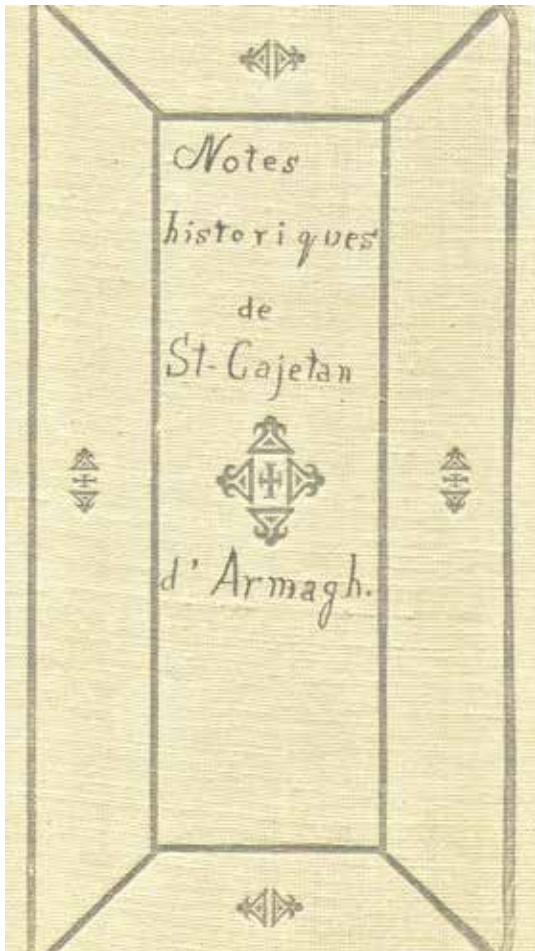 Notes
historiques
de
St-Cajetan
d'Armagh.